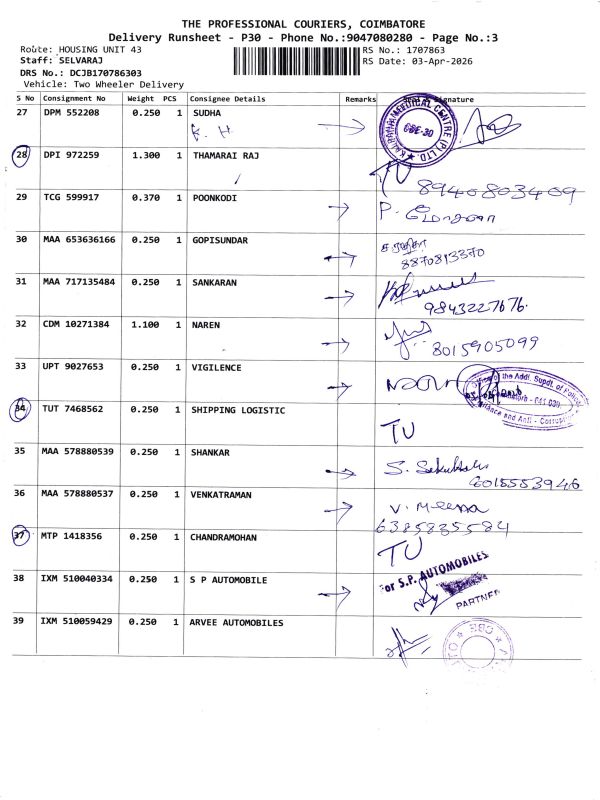 THE PROFESSIONAL COURIERS, COIMBATORE
Delivery Runsheet - P30 - Phone No.:9047080280 - Page No.:3
Route: HOUSING UNIT 43 RS No.: 1707863
Staff: SELVARAJ RS Date: 03-Apr-2026
DRS No.: DCJB170786303
Vehicle: Two Wheeler Delivery
S No Consignment No Weight PCS Consignee Details Remarks Signature
27 DPM 552208 0.250 1 SUDHA
K. H
28 DPI 972259 1.300 1 THAMARAI RAJ TU
8940803409
29 TCG 599917 0.370 1 POONKODI P.
30 MAA 653636166 0.250 1 GOPISUNDAR
8870813370
31 MAA 717135484 0.250 1 SANKARAN
9843227676.
32 CDM 10271384 1.100 1 NAREN
8015905099
33 UPT 9027653 0.250 1 VIGILENCE
34 TUT 7468562 0.250 1 SHIPPING LOGISTIC
TU
35 MAA 578880539 0.250 1 SHANKAR
S.
6015553946
36 MAA 578880537 0.250 1 VENKATRAMAN V. Meena
6385835584
37 MTP 1418356 0.250 1 CHANDRAMOHAN TU
38 IXM 510040334 0.250 1 S P AUTOMOBILE For S.P. AUTOMOBILES
PARTNER
39 IXM 510059429 0.250 1 ARVEE AUTOMOBILES